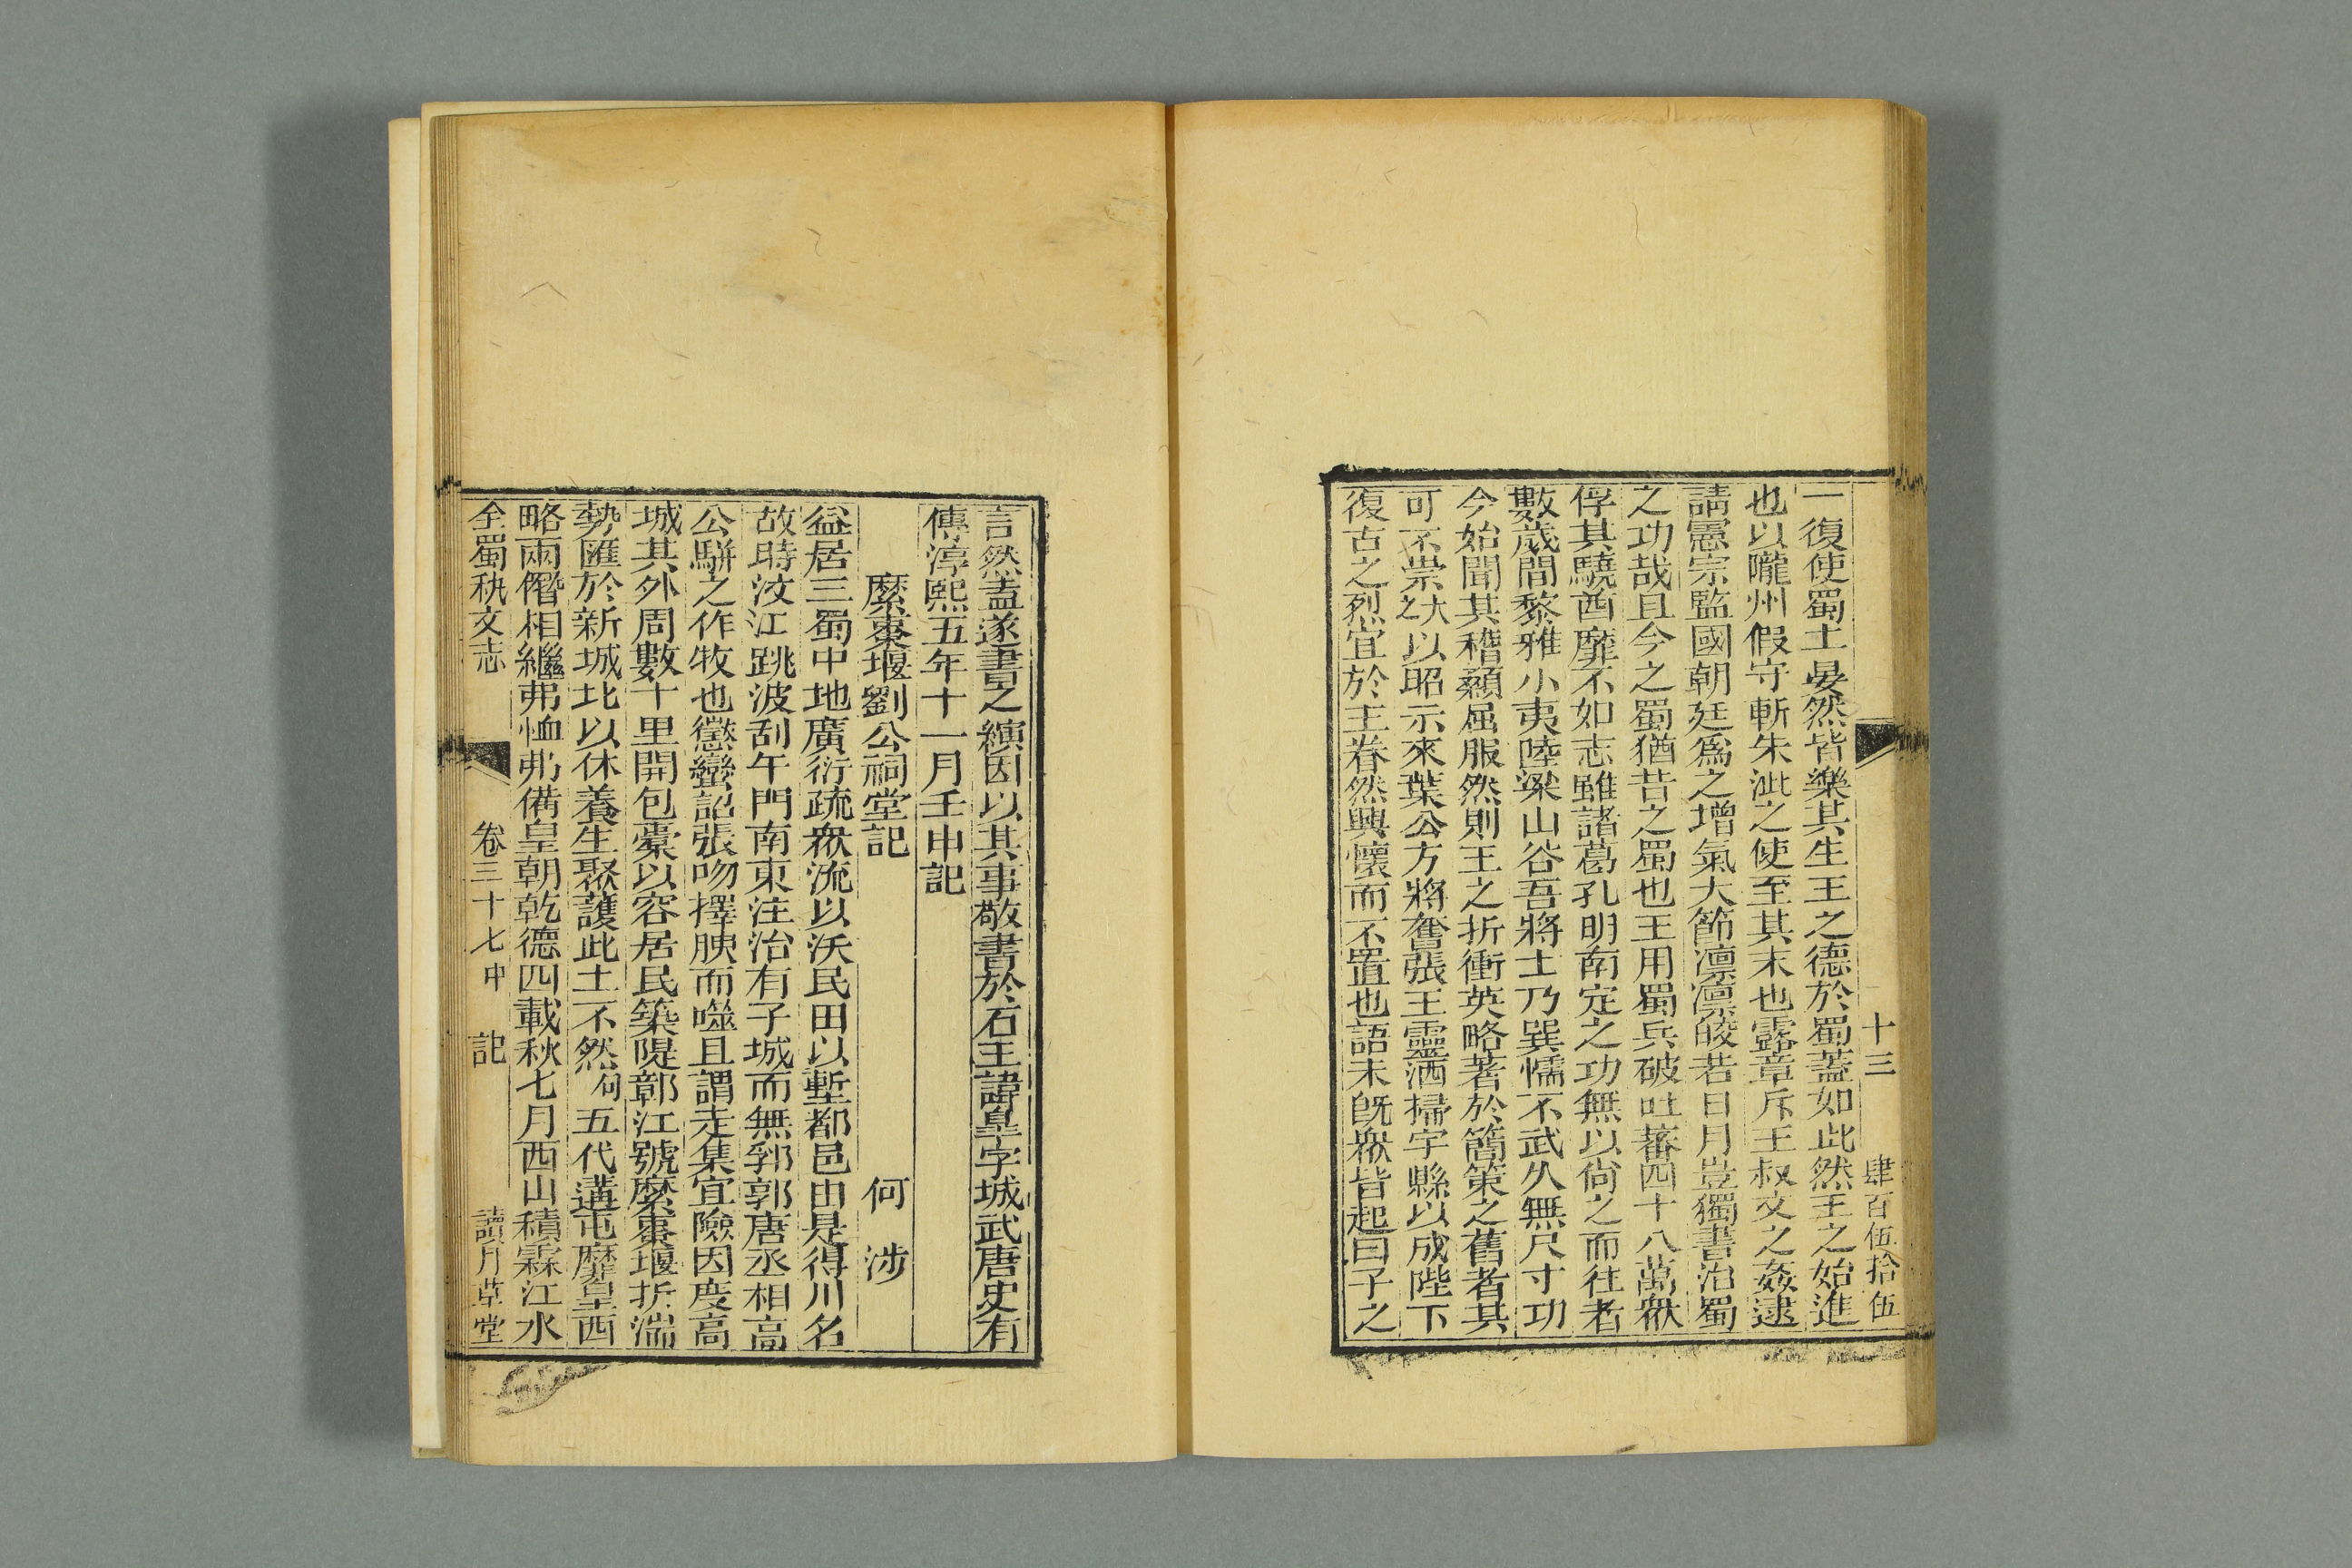 十三 肆百伍拾伍
一復使蜀土晏然皆樂其生王之德於蜀蓋如此然王之始進
也以隴州假守斬朱泚之使至其末也露章斥王叔文之姦逮
請憲宗監國朝廷爲之增氣大節凛凛皎若日月豈獨書治蜀
之功哉且今之蜀猶昔之蜀也王用蜀兵破吐蕃四十八萬衆
俘其驍酋靡不如志雖諸葛孔明南定之功無以尙之而往者
數歲間黎雅小夷陸梁山谷吾將士乃巽懦不武久無尺寸功
今始聞其稽顙屈服然則王之折衝英略著於簡策之舊者其
可不崇大之以昭示來葉公方將奮張王靈洒掃宇縣以成陛下
復古之烈宜於王眷然興懷而不置也語未旣衆皆起曰子之
言然盍遂書之縯因以其事敬書於石王諱皐字城武唐史有
傳淳熙五年十一月壬申記
縻棗堰劉公祠堂記 何涉
益居三蜀中地廣衍疏衆流以沃民田以塹都邑由是得川名
故時汶江跳波刮午門南東注治有子城而無郛郭唐丞相高
公駢之作牧也懲蠻詔張吻擇腴而噬且謂走集宜險因度高
城其外周數十里開包橐以容居民築隄鄣江號縻棗堰折湍
勢匯於新城北以休養生聚護此土不然何五代遘屯靡皇西
略兩僭相繼弗恤弗備皇朝乾德四載秋七月西山積霖江水
全蜀秇文志 卷三十七中 記 讀月草堂